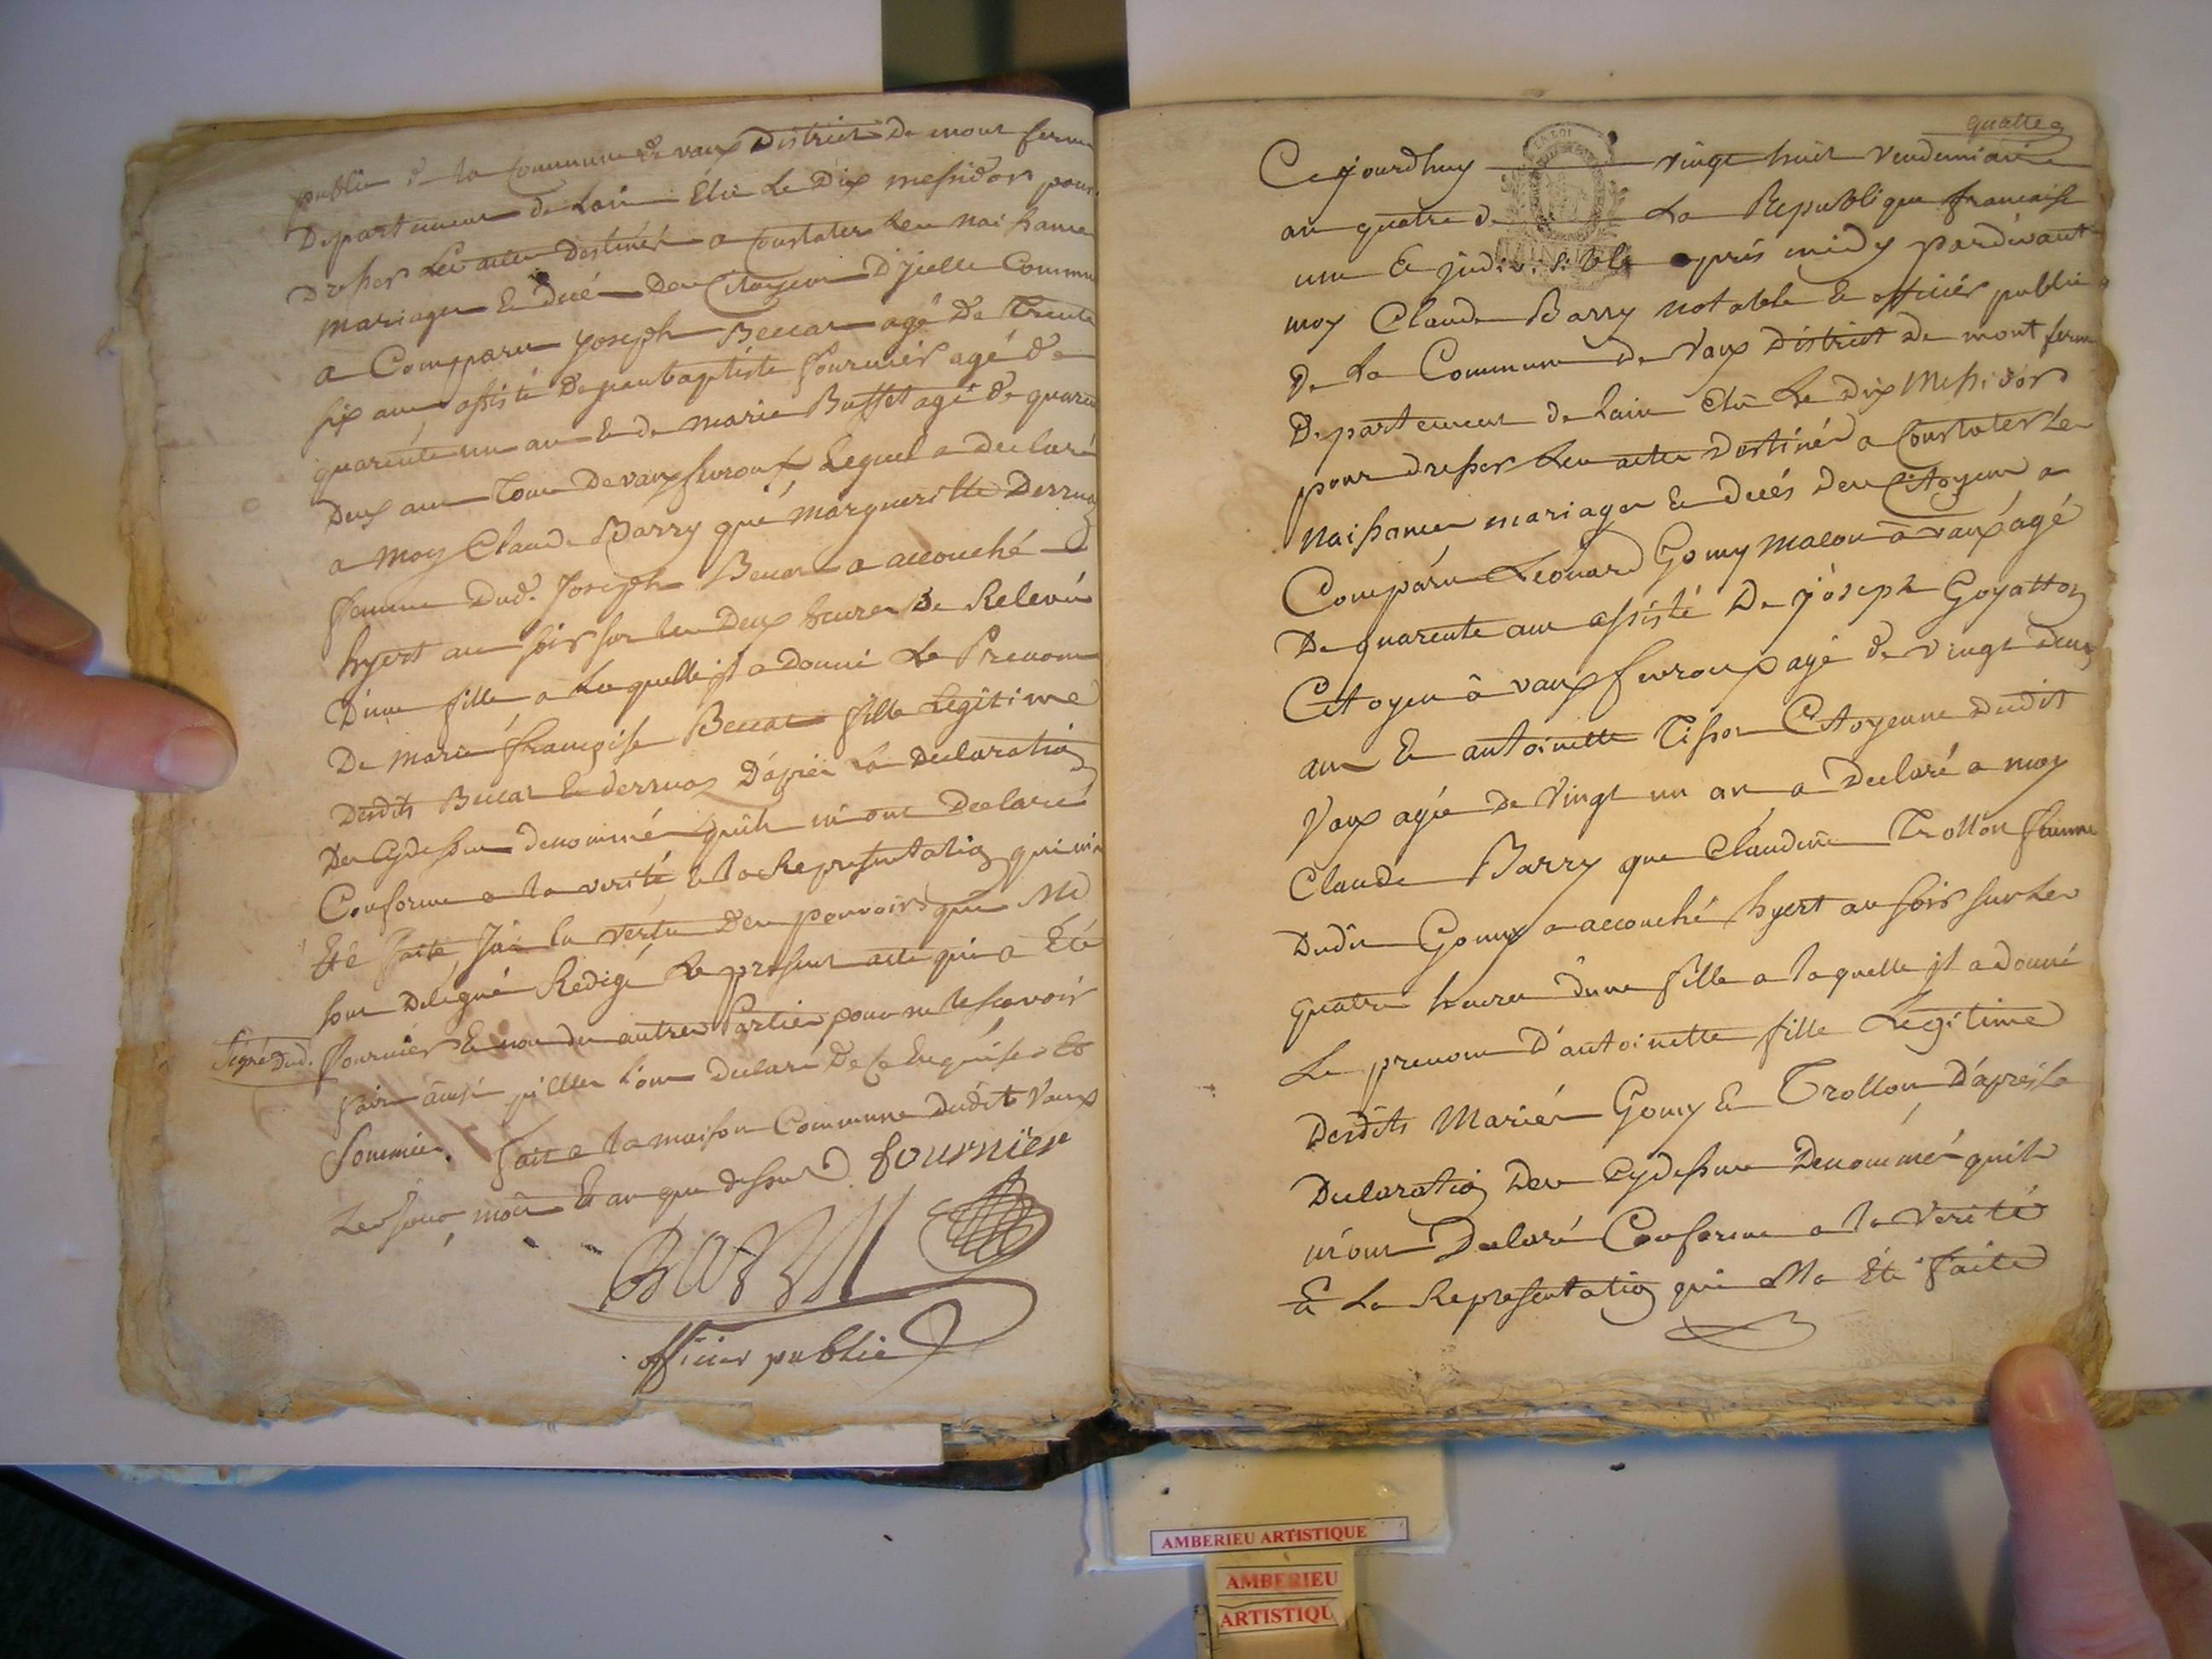 public de la Commune de vaux District de mont ferme
Departement de Lain Elu Le Dix messidor pour
Dresser Les actes Destinés a Constater Les naissances
mariages & Décés Des Citoyens D'jcelle Commune
a Comparu Joseph Beccat agé De Trente
six ans assisté De jeanbaptiste fournier agé de
quarente un an & de marie Buffet agé de quarente
Deux ans Tous De vaux fevroux, Lequel a Declaré
a moy Claude Barry que margueritte Derruaz
femme Dud. Joseph Beccat a accouché
hyert au soir sur les Deux heures De Relevée
D'une fille a Laquelle jl a Donné Le Prenom
De marie françoise Beccat fille Legitime
Desdits Beccat & derruaz D'apres la Declaration
Des Cydessus denommés quils m'ont Declarée
Conforme a la verité & la Representation qui m'a
Eté faite, J'ai En vertu Des pouvoirs qui Me
sont Délégués Rédigé Le present acte qui a Eté
Signé Dud. fournier & non des autres Parties pour ne le scavoir
faire ainsi qu'elles L'ont Declaré De Ce Enquises Et
Sommées. fait a la maison Commune dudit Vaux
Les jour, mois Et an que dessus fournier
Barry
officier public
quatre
Cejourdhuy vingt huit Vendemiaire
an quatre de La Republique francaise
LA LOI
une & jndivisible aprés midy pardevant
moy Claude Barry notable & officiér public
De La Commune De Vaux District De mont ferme
Departement de Lain Elu Le Dix Messidor
pour dresser Les actes Destinés a Constater Les
Naissances mariages & decés Des Citoyens a
Comparu Léonard Gomy macon a vaux agé
De quarente ans assisté De jóseph Goyatton
Citoyen à vaux fevroux agé de vingt deux
ans & antoinette Tissot Citoyenne dudit
Vaux agée De Vingt un an a Declaré a moy
Claude Barry que Claudine Trollon femme
Dudit Gomy a accouché hyert au soir sur Les
quatre heures d'une fille a laquelle jl a donné
Le prenom D'antoinette fille Legitime
Desdits Mariés Gomy & Trollon D'aprés la
Declaration Des Cydessus Denommés quils
m'ont Declaré Conforme a la Verité
& La Representation qui Ma Eté faite
AMBERIEU ARTISTIQUE
AMBERIEU
ARTISTIQU